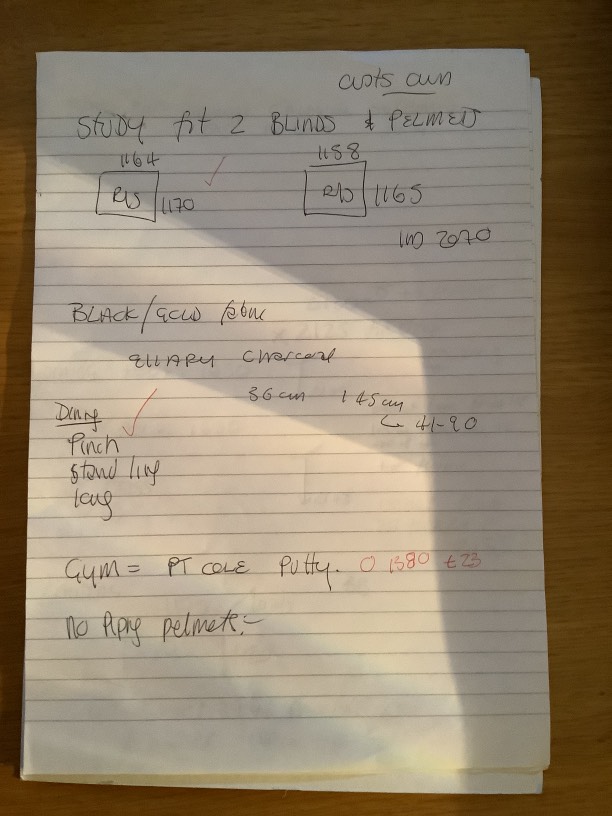 custs own
STUDY fit 2 BLINDS & PELMETS
1164 1158
R/S 1170 R/S 1165
2070
BLACK/GOLD fabric
charcoal
36cm 145cm
41-90
Dining
Pinch
Stand ling
long
Gym = PT COLE Putty. 0 1380 £23
no piping pelmets:-